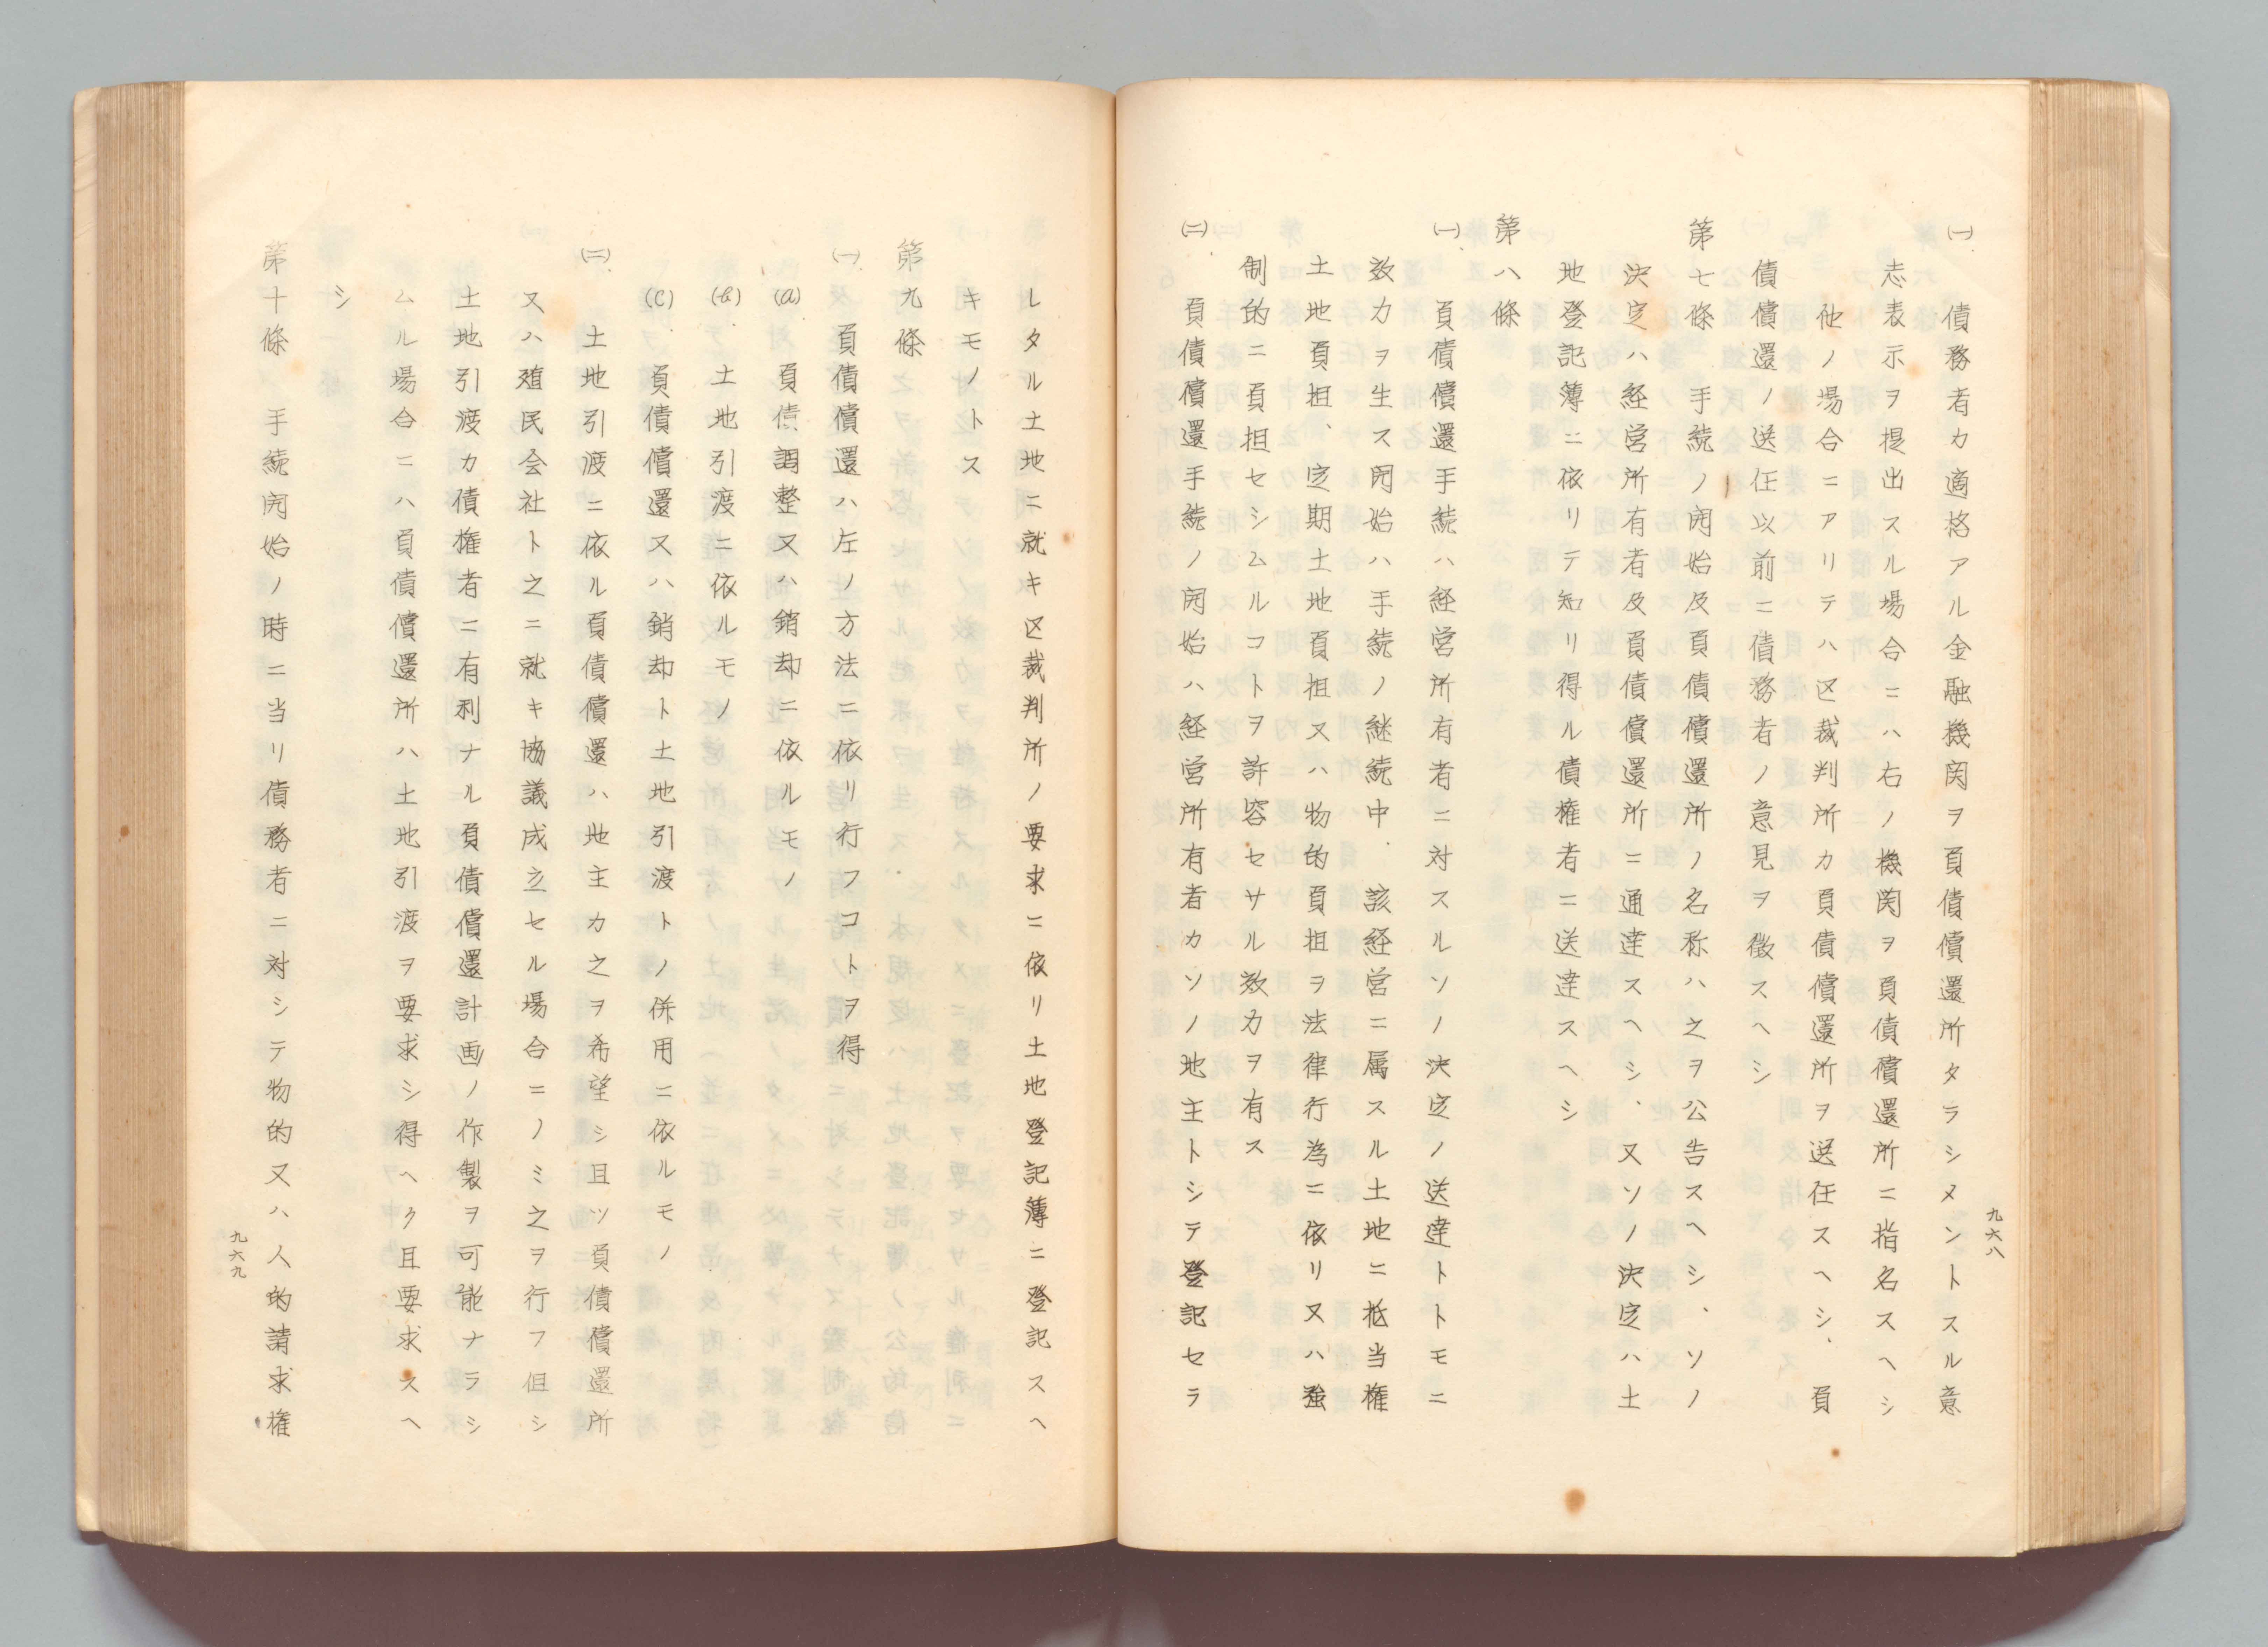 ㈠　債務者カ適格アル金融機関ヲ負債償還所タラシメントスル意
志表示ヲ提出スル場合ニハ右ノ機関ヲ負債償還所ニ指名スヘシ
他ノ場合ニアリテハ区裁判所カ負債償還所ヲ選任スヘシ、負
債償還ノ送任以前ニ債務者ノ意見ヲ徴スヘシ
第七條　手続ノ開始及負債償還所ノ名称ハ之ヲ公告スヘシ、ソノ
決定ハ経営所有者及負債償還所ニ通達スヘシ、又ソノ決定ハ土
地登記簿ニ依リテ知リ得ル債権者ニ送達スヘシ
第八條
㈠　負債償還手続ハ経営所有者ニ対スルソノ決定ノ送達トモニ
効力ヲ生ス開始ハ手続ノ継続中．該経営ニ属スル土地ニ抵当権
土地負担、定期土地負担又ハ物的負担ヲ法律行為ニ依リ又ハ強
制的ニ負担セシムルコトヲ許容セサル効力ヲ有ス
㈡　負債償還手続ノ開始ハ経営所有者カソノ地主トシテ登記セラ
九六八
レタル土地ニ就キ区裁判所ノ要求ニ依リ土地登記簿ニ登記スヘ
キモノトス
第九條
㈠　負債償還ハ左ノ方法ニ依リ行フコトヲ得
(a)　負債調整又ハ銷却ニ依ルモノ
(b)．土地引渡ニ依ルモノ
(C)．負債償還又ハ銷却ト土地引渡トノ併用ニ依ルモノ
㈡．土地引渡ニ依ル負債償還ハ地主カ之ヲ希望シ且ツ負債償還所
又ハ殖民会社ト之ニ就キ協議成立セル場合ニノミ之ヲ行フ但シ
土地引渡カ債権者ニ有利ナル負債償還計画ノ作製ヲ可能ナラシ
ムル場合ニハ負債償還所ハ土地引渡ヲ要求シ得ヘク且要求スヘ
シ
第十條　手続開始ノ時ニ当リ債務者ニ対シテ物的又ハ人的請求権
九六九